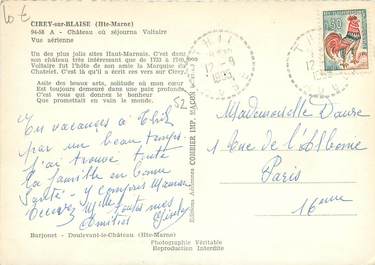 10€
CIREY-sur-BLAISE (Hte-Marne)
94-58 A - Château où séjourna Voltaire
Vue aérienne
Un des plus jolis sites Haut-Marnais. C'est dans
son château très intéressant que de 1733 à 1749
Voltaire fut l'hôte de son amie la Marquise du
Chatelet. C'est là qu'il a écrit ces vers sur Cirey.
Asile des beaux arts, solitude où mon cœur
Est toujours demeuré dans une paix profonde
C'est vous qui donnez le bonheur
Que promettait en vain le monde.
52
En vacances à
par un beau temps
j'ai trouvé toute
la famille en bonne
santé - y compris Maman
Recevez Mlle toutes mes
amitiés
Barjonet - Doulevant-le-Château (Hte-Marne)
Photographie Véritable
Reproduction Interdite
Editions Aériennes COMBIER IMP. MACON
12-9
1965
0,30
Mademoiselle
1 Rue de l'Alboni
Paris
16ème